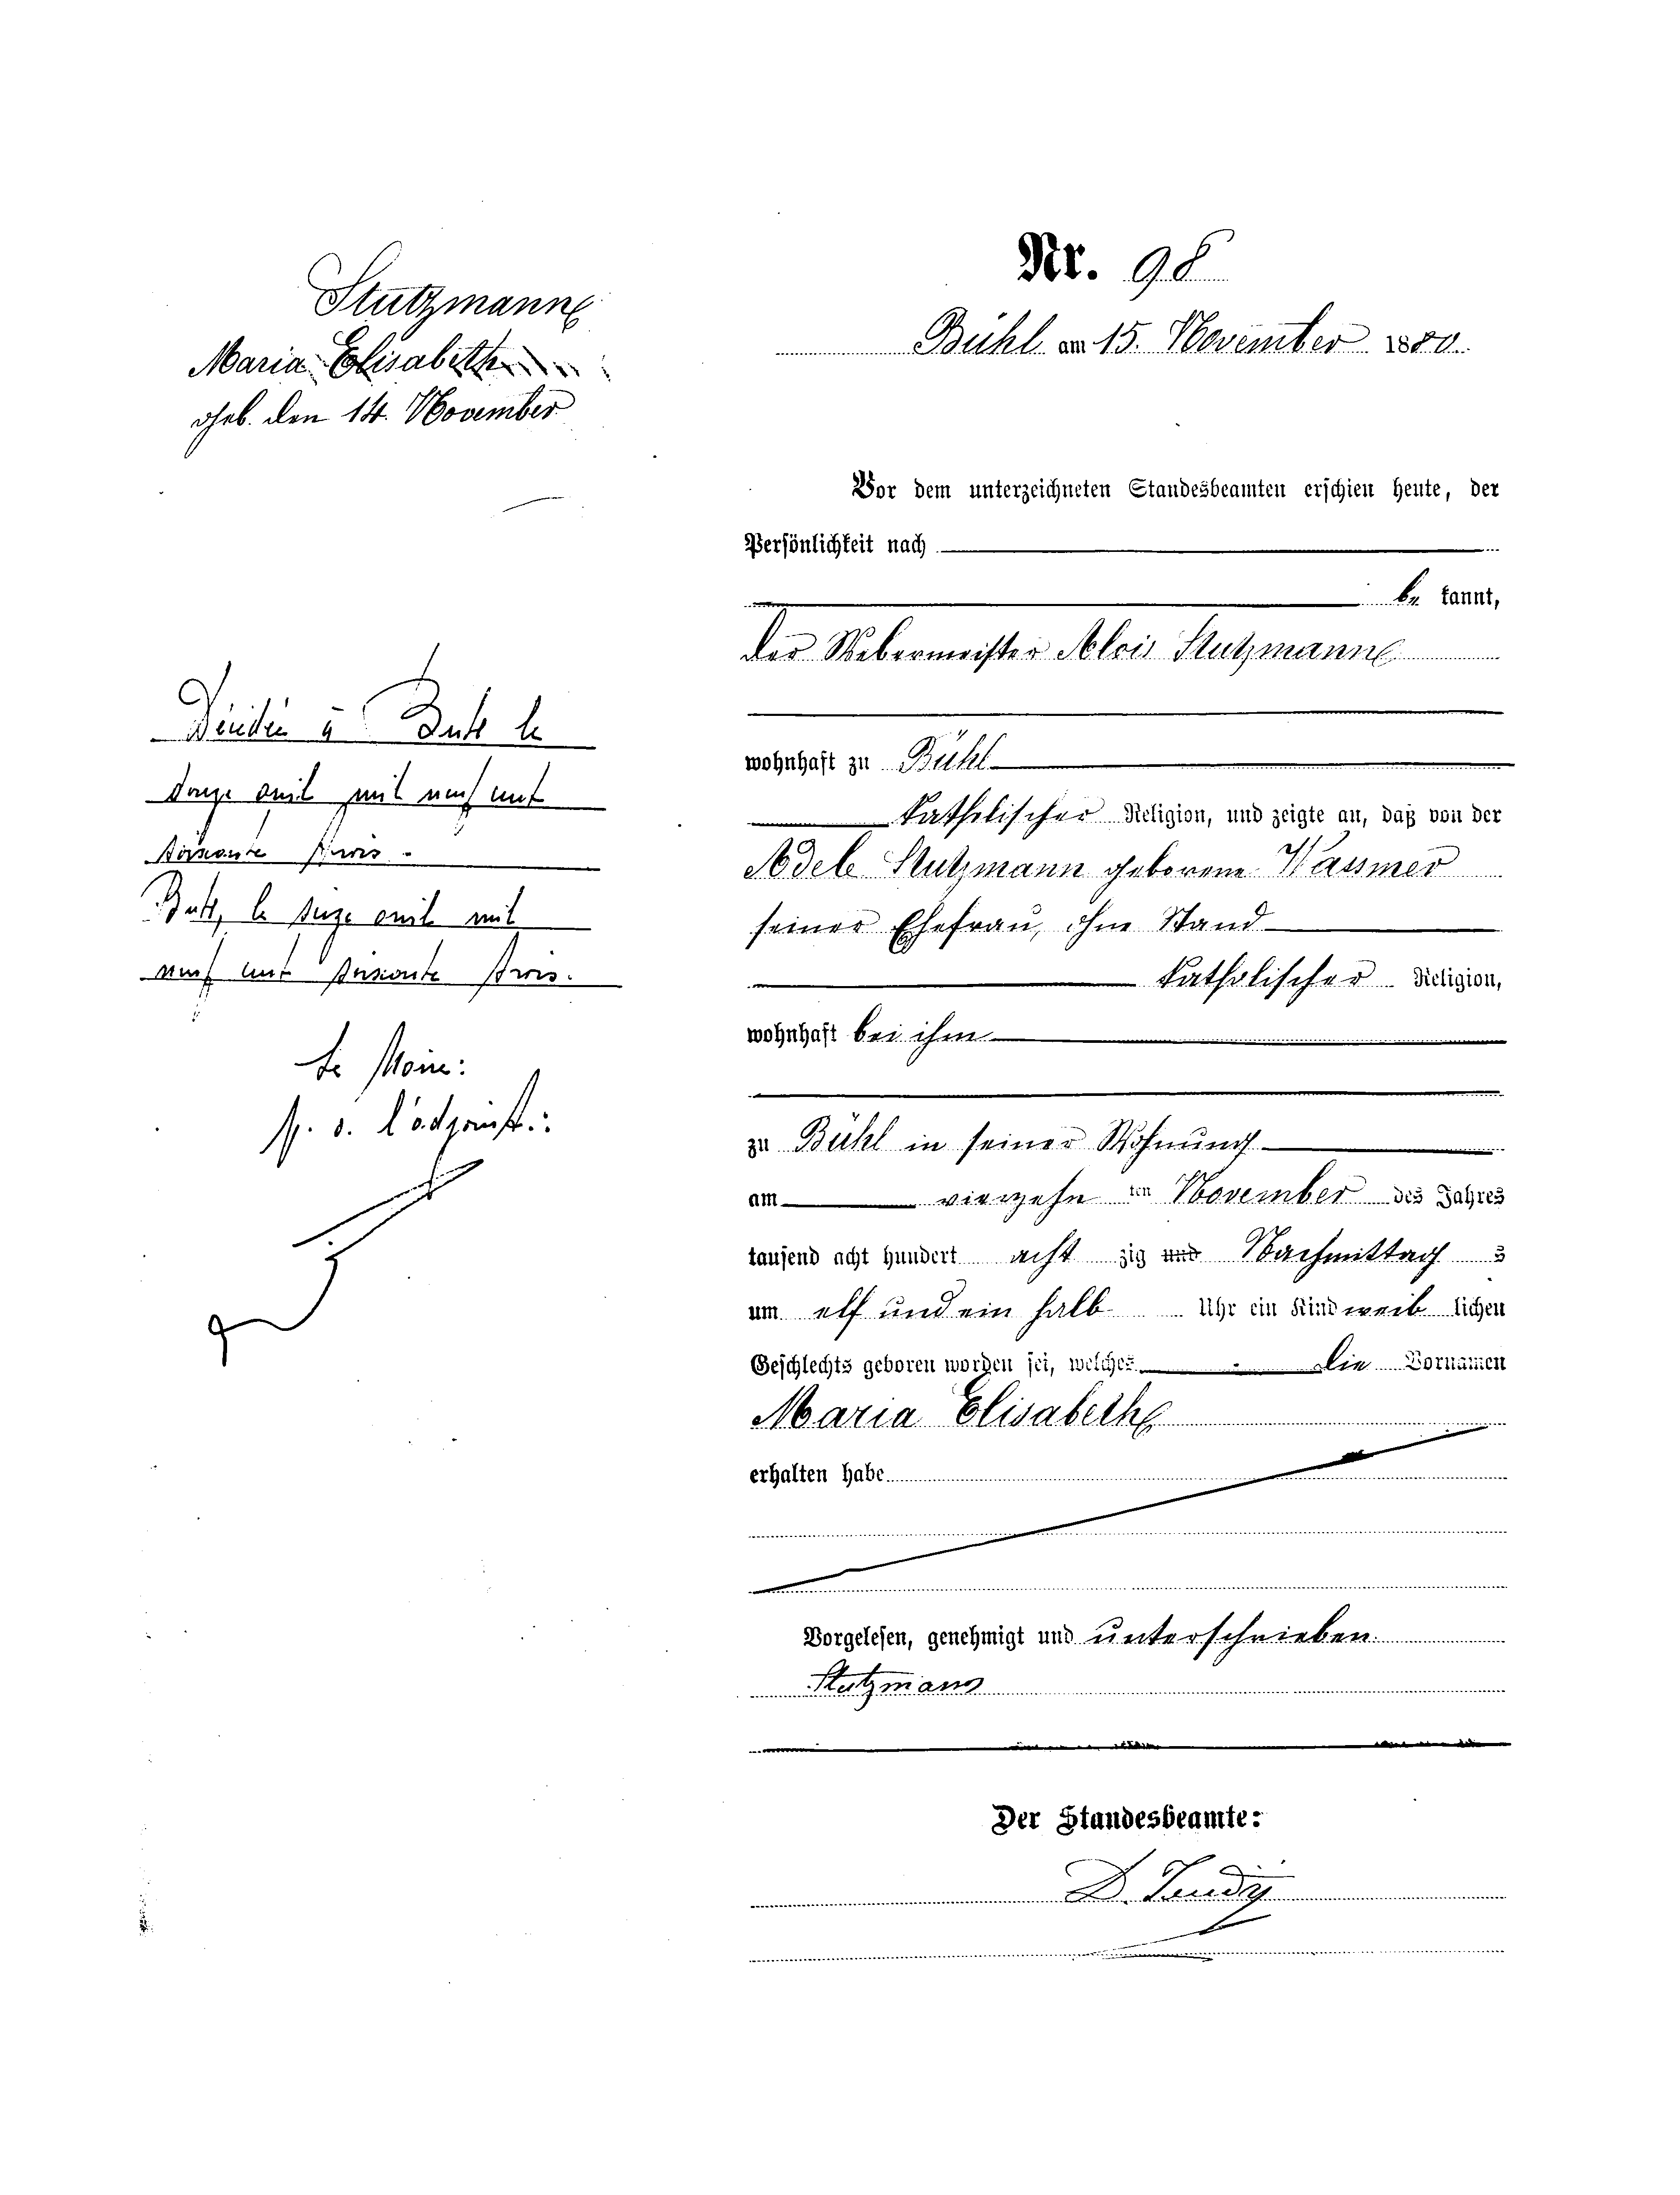 Stutzmann
Maria Elisabeth
geb. den 14. November
Décédée à Buhl le
douze avril mil neuf cent
soixante trois.
Buhl, le seize avril mil
neuf cent soixante trois.
Le Maire:
p. d. l'adjoint:
Nr. 98
Bühl am 15. November 1880.
Vor dem unterzeichneten Standesbeamten erschien heute, der
Persönlichkeit nach
be kannt,
der Webermeister Alois Stutzmann
wohnhaft zu Bühl
katholischer Religion, und zeigte an, daß von der
Adele Stutzmann geborene Wassmer
seiner Ehefrau, ohne Stand
katholischer Religion,
wohnhaft bei ihm
zu Bühl in seiner Wohnung
am vierzehn ten November des Jahres
tausend acht hundert acht zig und Nachmittag s
um elf und ein halb Uhr ein Kind weib lichen
Geschlechts geboren worden sei, welches die Vornamen
Maria Elisabeth
erhalten habe
Vorgelesen, genehmigt und unterschrieben
Stutzmann
Der Standesbeamte: